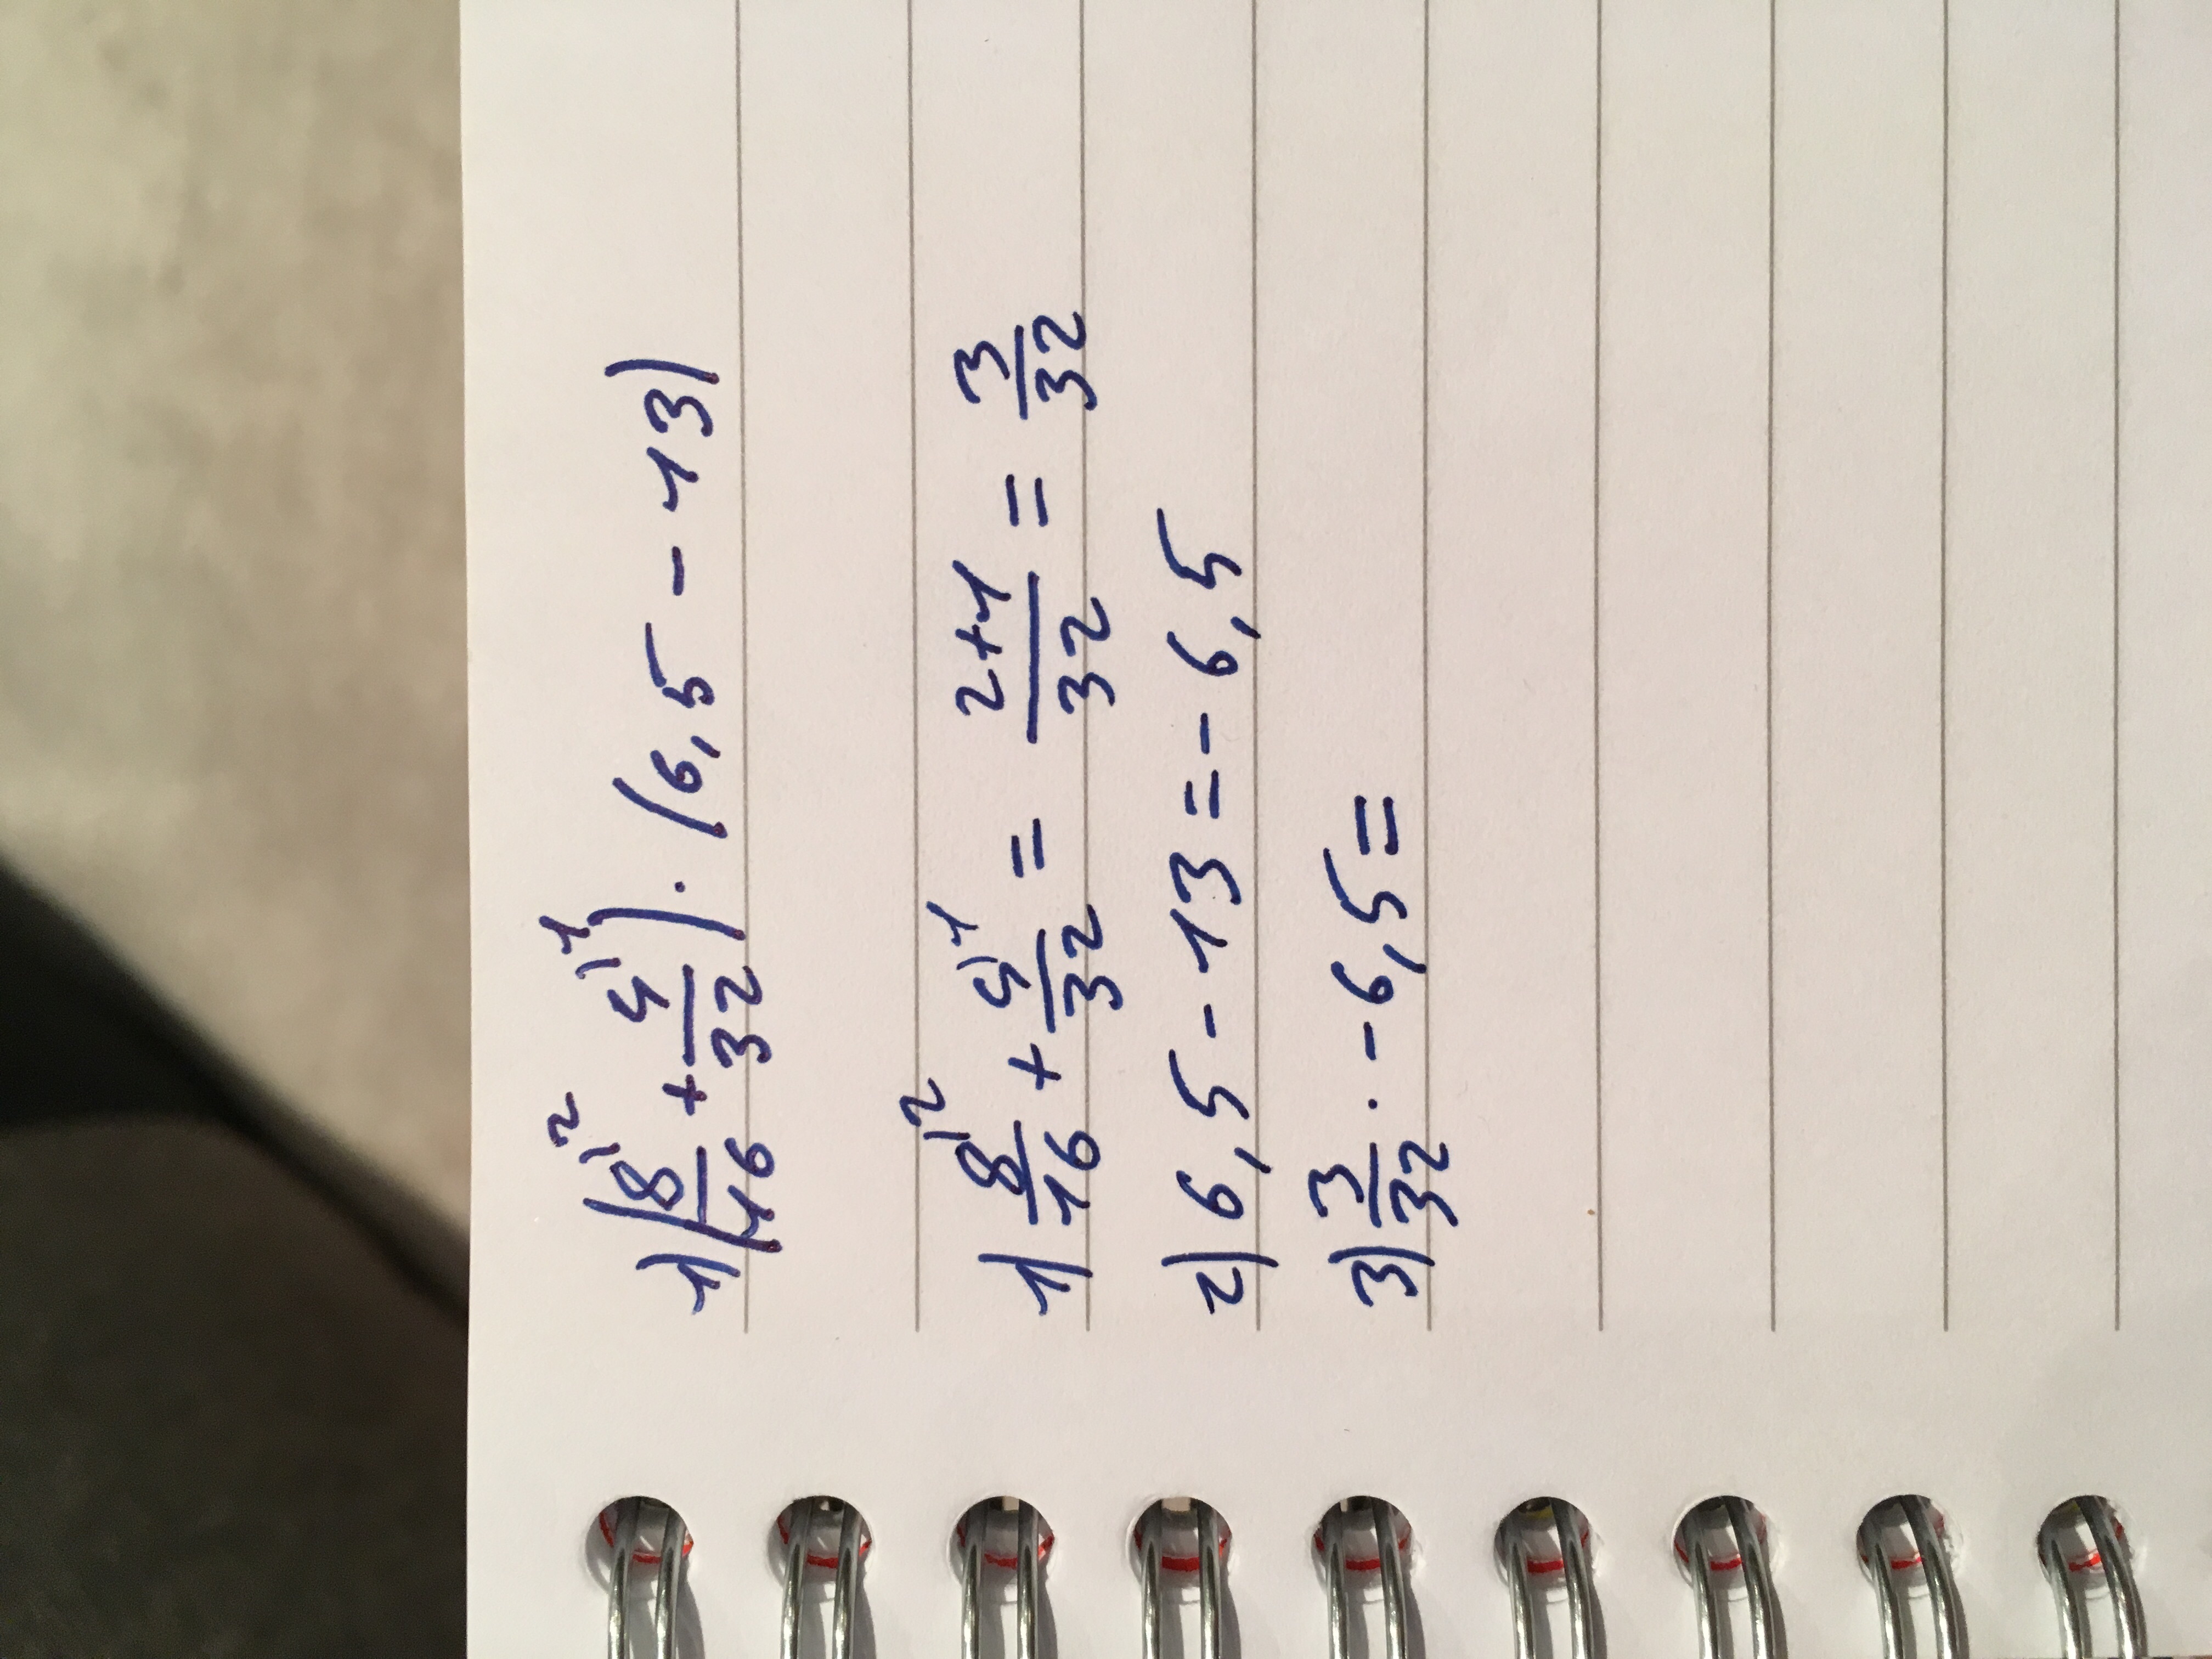 1) (8/16 \2 + 4/32 \1) · (6,5 - 13)
1) 8/16 \2 + 4/32 \1 = 2+1/32 = 3/32
2) 6,5 - 13 = - 6,5
3) 3/32 · - 6,5 =